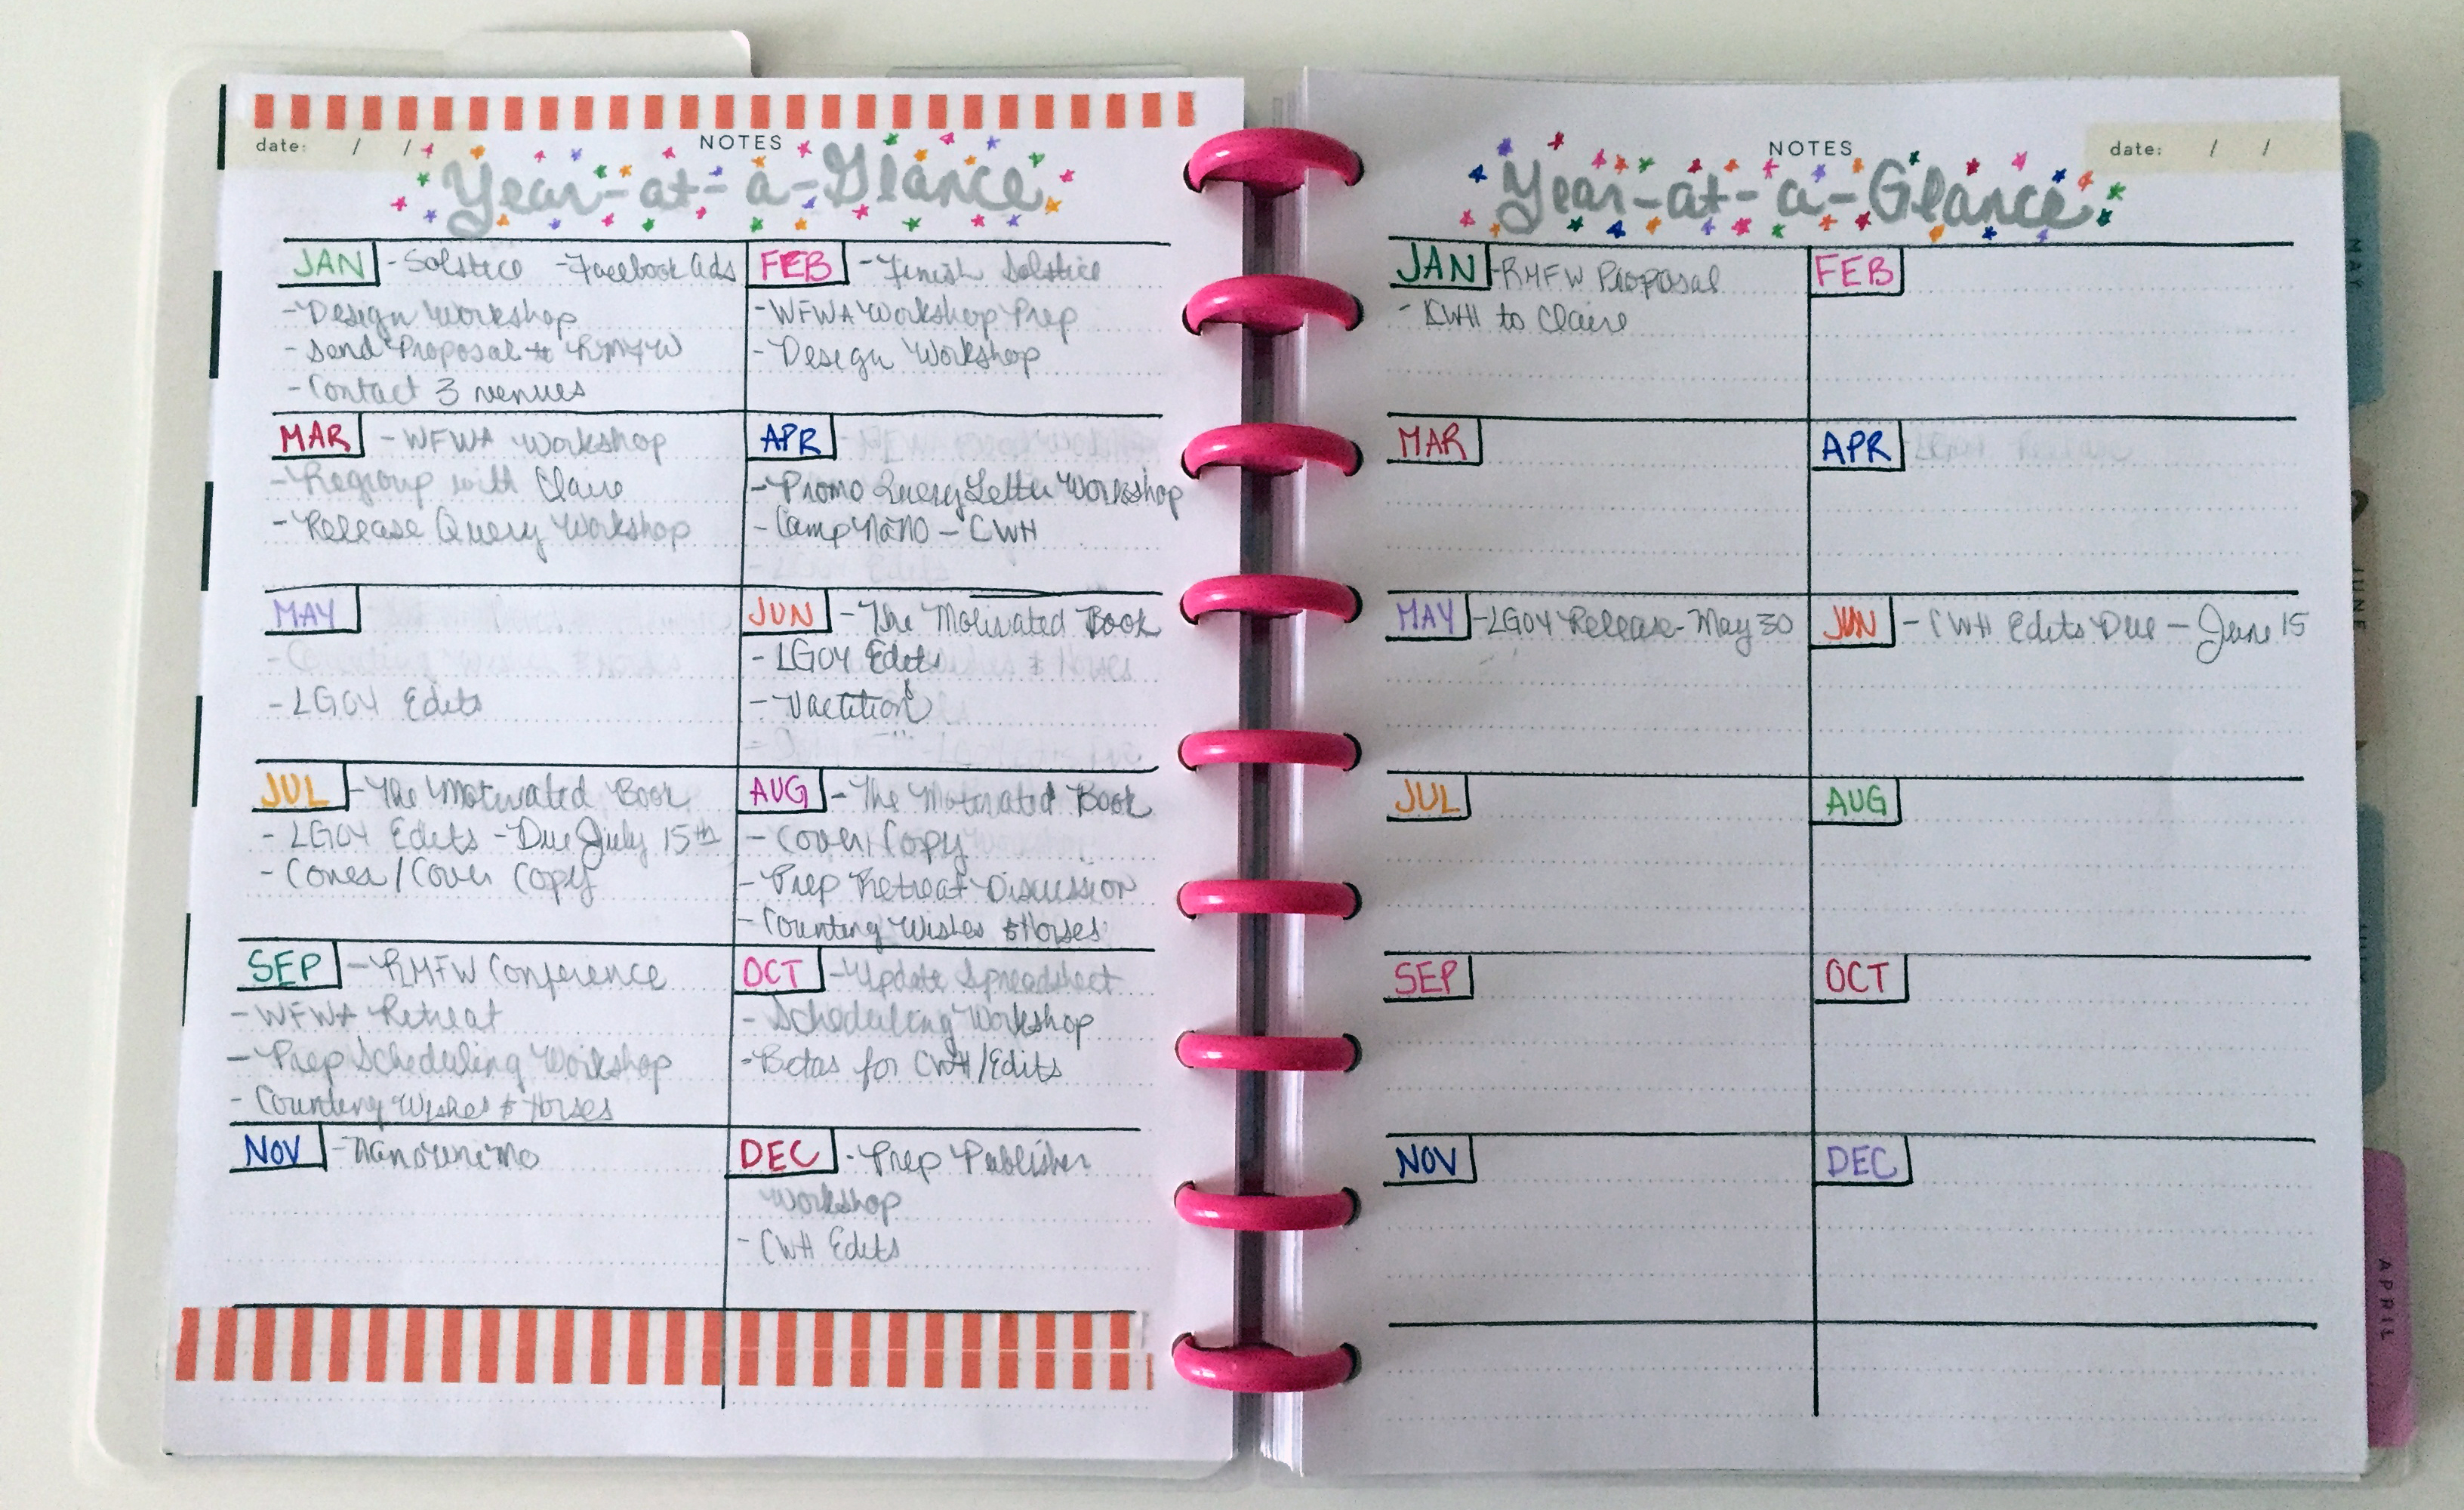 date: / /
NOTES
Year-at-a-Glance
JAN -Solstice -Facebook Ads
-Design Workshop
-Send Proposal to RMFW
-Contact 3 venues
FEB -Finish Solstice
-WFWA Workshop Prep
-Design Workshop
MAR -WFWA Workshop
-Regroup with Claire
-Release Query Workshop
APR
-Promo Query Letter Workshop
-Camp NaNo - CWH
MAY
-LG04 Edits
JUN -The Motivated Book
-LG04 Edits
JUL -The Motivated Book
-LG04 Edits -Due July 15th
-Cover/Cover Copy
AUG -The Motivated Book
-Cover Copy
-Prep Retreat Discussion
-Counting Wishes & Horses
SEP -RMFW Conference
-WFWA Retreat
-Prep Scheduling Workshop
-Counting Wishes & Horses
OCT -Update Spreadsheet
-Scheduling Workshop
-Betas for CWH/Edits
NOV -NanoWriMo
DEC -Prep Publisher
Workshop
-CWH Edits
NOTES
date: / /
Year-at-a-Glance
JAN -RMFW Proposal
-CWH to Claire
FEB
MAR
APR
MAY -LG04 Release- May 30
JUN -CWH Edits Due - June 15
JUL
AUG
SEP
OCT
NOV
DEC
MAY
JUNE
APRIL